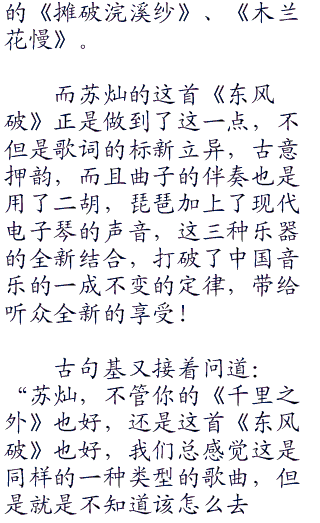 的《摊破浣溪纱》、《木兰
花慢》。
而苏灿的这首《东风
破》正是做到了这一点，不
但是歌词的标新立异，古意
押韵，而且曲子的伴奏也是
用了二胡，琵琶加上了现代
电子琴的声音，这三种乐器
的全新结合，打破了中国音
乐的一成不变的定律，带给
听众全新的享受！
古句基又接着问道：
“苏灿，不管你的《千里之
外》也好，还是这首《东风
破》也好，我们总感觉这是
同样的一种类型的歌曲，但
是就是不知道该怎么去